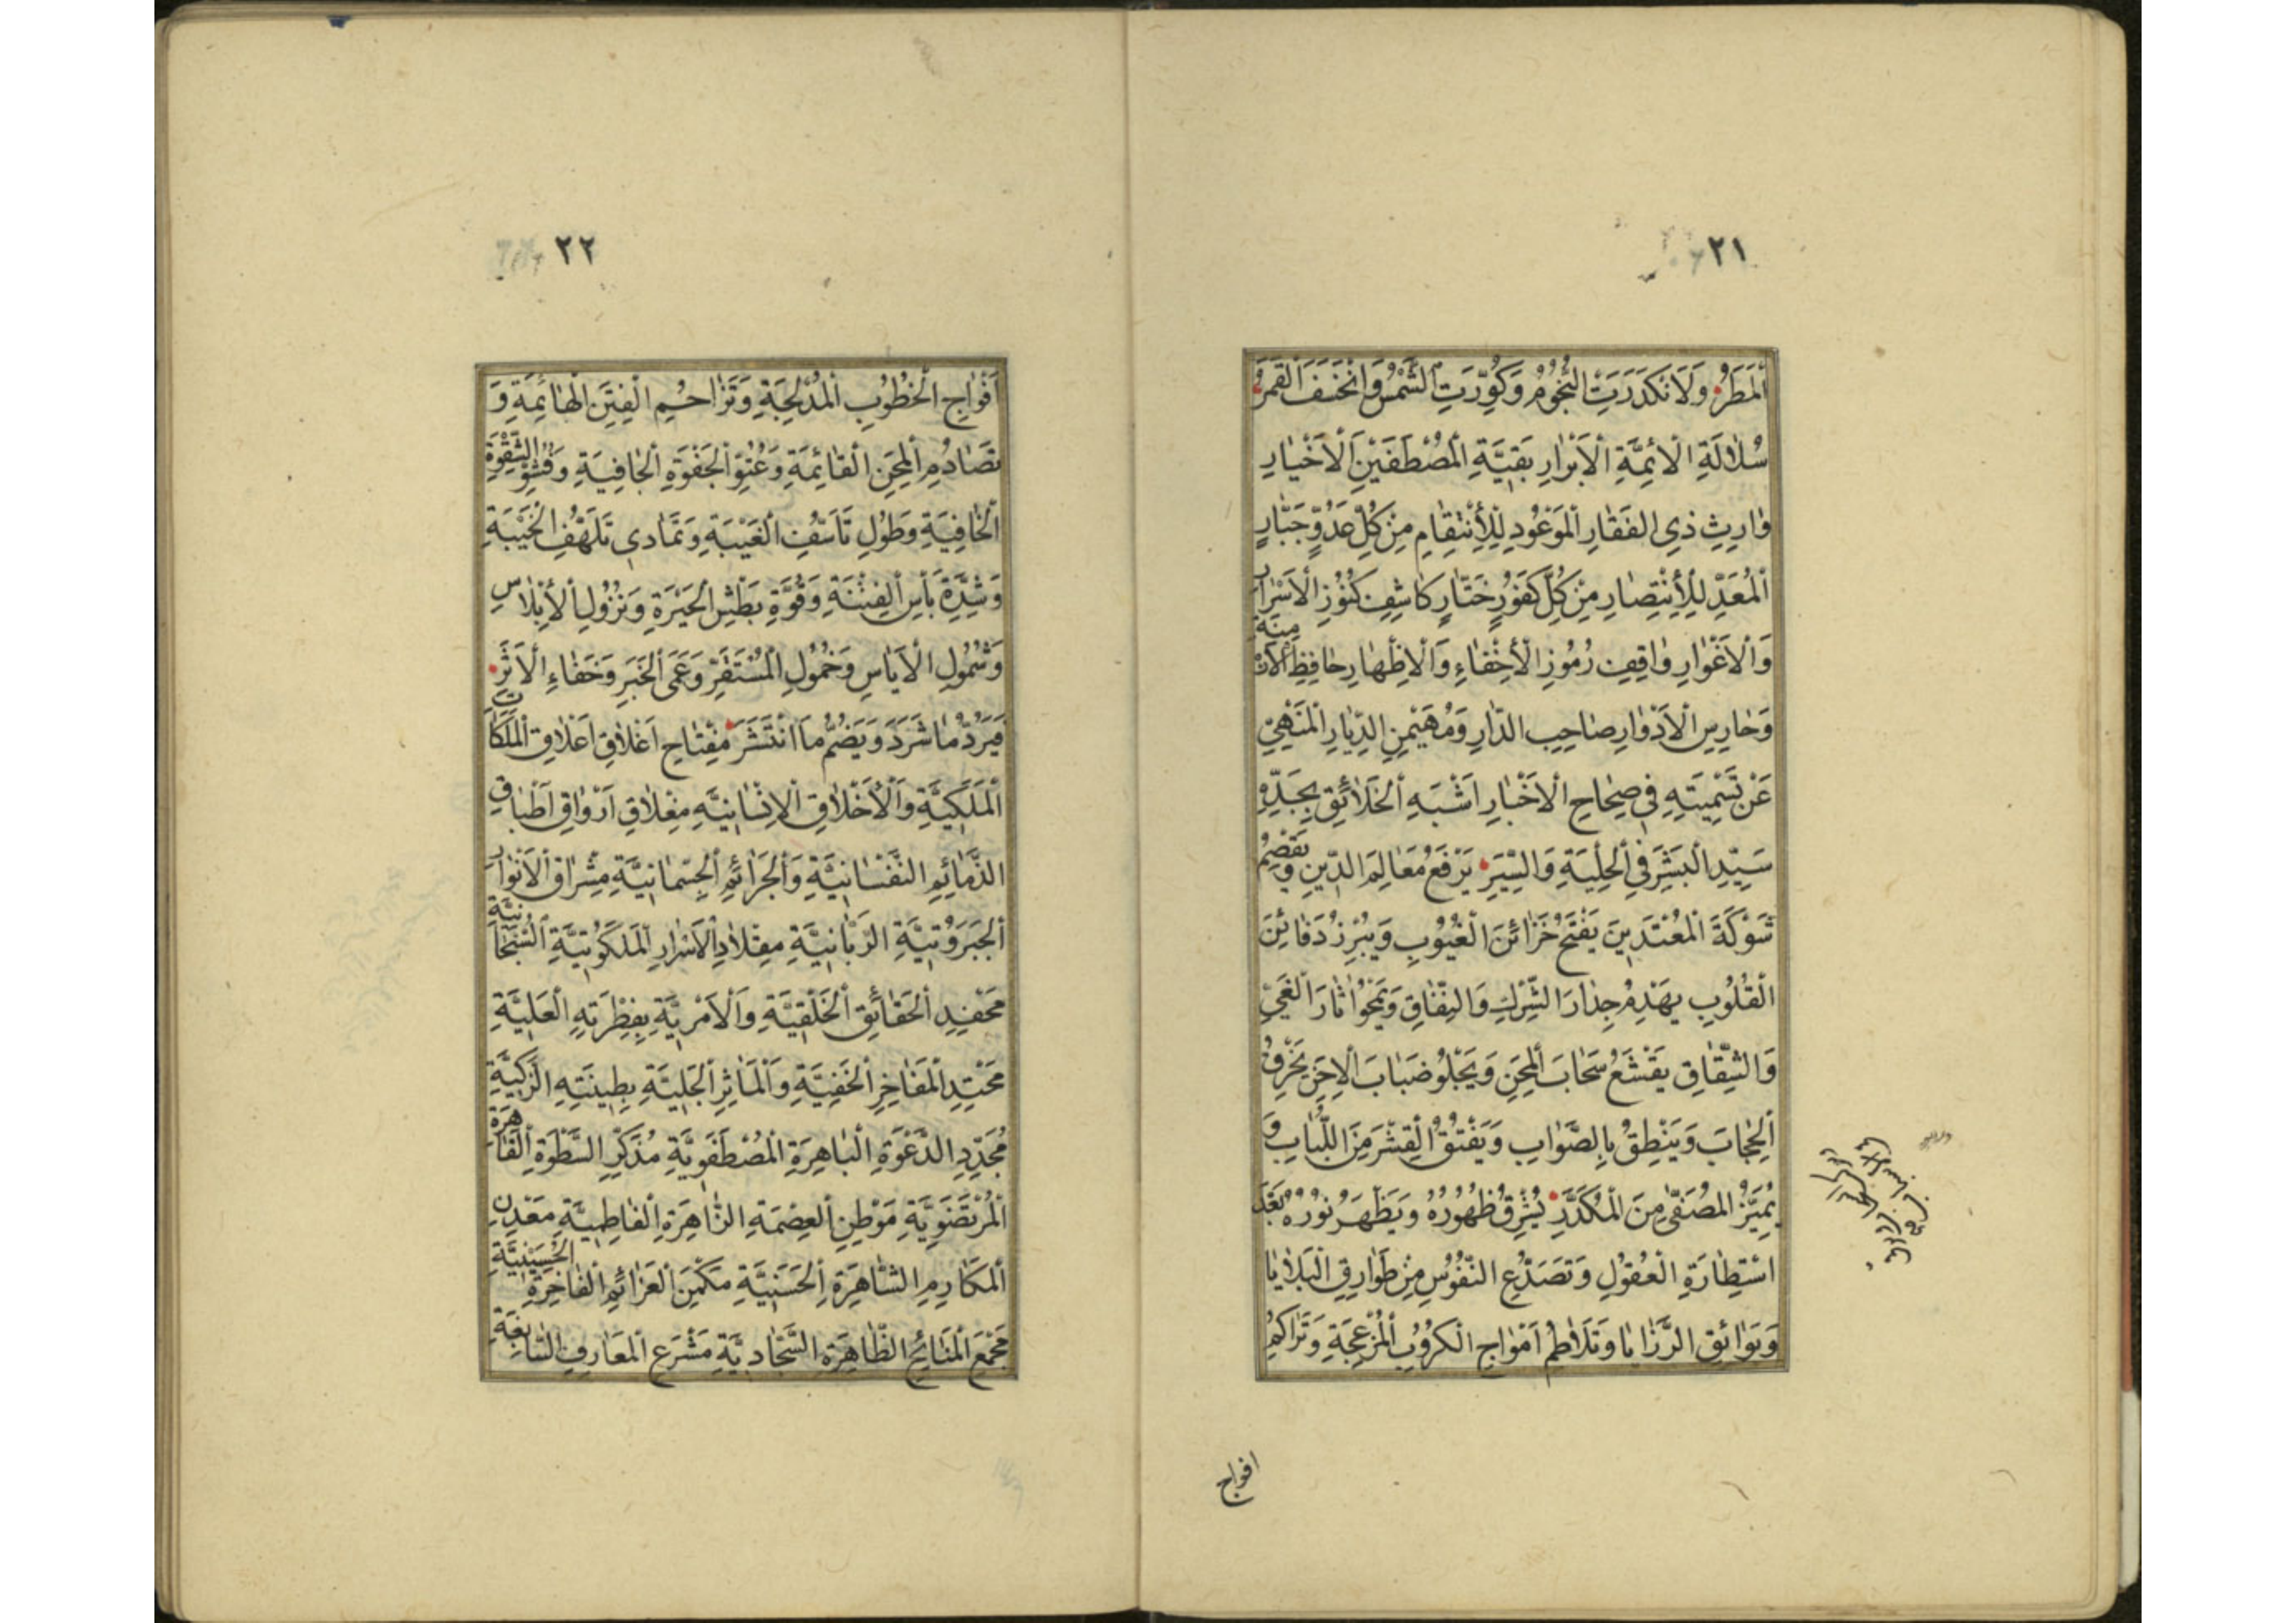 ٢١
اَلْمَطَرُ وَلَانْكَدَرَتِ النُّجُومُ وَكُوِّرَتِ الشَّمْسُ وَانْخَسَفَ الْقَمَرُ
سُلَالَةِ الْاَئِمَّةِ الْاَبْرَارِ بَقِيَّةِ الْمُصْطَفَيْنَ الْاَخْيَارِ
وَارِثِ ذِي الْفَقَارِ الْمَوْعُودِ لِلْاِنْتِقَامِ مِنْ كُلِّ عَدُوٍّ جَبَّارٍ
اَلْمُعَدِّ لِلْاِنْتِصَارِ مِنْ كُلِّ كَفُورٍ خَتَّارٍ كَاشِفِ كُنُوزِ الْاَسْرَارِ
وَالْاَغْوَارِ وَاقِفِ رُمُوزِ الْاِخْفَاءِ وَالْاِظْهَارِ حَافِظِ الْاَزْمِنَةِ
وَحَارِسِ الْاَدْوَارِ صَاحِبِ الدَّارِ وَمُهَيْمِنِ الدِّيَارِ الْمَنْهِيِّ
عَنْ تَسْمِيَتِهِ فِي صِحَاحِ الْاَخْبَارِ اَشْبَهِ الْخَلَائِقِ بِجَدِّهِ
سَيِّدِ الْبَشَرِ فِي الْحِلْيَةِ وَالسِّيَرِ يَرْفَعُ مَعَالِمَ الدِّينِ وَيَقْصِمُ
شَوْكَةَ الْمُعْتَدِينَ يَفْتَحُ خَزَائِنَ الْغُيُوبِ وَيُبْرِزُ دَفَائِنَ
الْقُلُوبِ يَهْدِمُ جِدَارَ الشِّرْكِ وَالنِّفَاقِ وَيَمْحُو اٰثَارَ الْغَيِّ
وَالشِّقَاقِ يَقْشَعُ سَحَابَ الْمِحَنِ وَيَجْلُو ضَبَابَ الْاِحَنِ يَخْرِقُ
الْحِجَابَ وَيَنْطِقُ بِالصَّوَابِ وَيَفْتُقُ الْقِشْرَ مِنَ اللُّبَابِ وَ
يُمَيِّزُ الْمُصَفّٰى مِنَ الْمُكَدَّرِ يُشْرِقُ ظُهُورُهُ وَيَظْهَرُ نُورُهُ بَعْدَ
اسْتِطَارَةِ الْعُقُولِ وَتَصَدُّعِ النُّفُوسِ مِنْ طَوَارِقِ الْبَلَايَا
وَبَوَائِقِ الرَّزَايَا وَتَلَاطُمِ اَمْوَاجِ الْكُرُوبِ الْمُزْعِجَةِ وَتَرَاكُمِ
افواج
٢٢
اَفْوَاجِ الْخُطُوبِ الْمُدْلِجَةِ وَتَزَاحُمِ الْفِتَنِ الْهَائِمَةِ وَ
تَصَادُمِ الْمِحَنِ الْقَائِمَةِ وَعُتُوِّ الْجَفْوَةِ الْجَافِيَةِ وَفُشُوِّ الشِّقْوَةِ
الْخَافِيَةِ وَطُولِ تَاَسُّفِ الْغَيْبَةِ وَتَمَادِي تَلَهُّفِ الْخَيْبَةِ
وَشِدَّةِ بَاْسِ الْفِتْنَةِ وَقُوَّةِ بَطْشِ الْحَيْرَةِ وَنُزُولِ الْاِبْلَاسِ
وَشُمُولِ الْاَيَاسِ وَخُمُولِ الْمُسْتَقَرِّ وَعَمَى الْخَبَرِ وَخَفَاءِ الْاَثَرِ
فَيَرُدُّ مَا شَرَدَ وَيَضُمُّ مَا انْتَشَرَ مِفْتَاحِ اَغْلَاقِ اَعْلَاقِ الْمَلَكَاتِ
الْمَلَكِيَّةِ وَالْاَخْلَاقِ الْاِنْسَانِيَّةِ مِغْلَاقِ اَرْوَاقِ اَطْبَاقِ
الذَّمَائِمِ النَّفْسَانِيَّةِ وَالْجَرَائِمِ الْجِسْمَانِيَّةِ مِشْرَاقِ الْاَنْوَارِ
الْجَبَرُوتِيَّةِ الرَّبَّانِيَّةِ مِقْلَادِ الْاَسْرَارِ الْمَلَكُوتِيَّةِ السُّبْحَانِيَّةِ
مَحْفِدِ الْحَقَائِقِ الْخَلْقِيَّةِ وَالْاَمْرِيَّةِ بِفِطْرَتِهِ الْعَلِيَّةِ
مَحْتِدِ الْمَفَاخِرِ الْخَفِيَّةِ وَالْمَاٰثِرِ الْجَلِيَّةِ بِطِينَتِهِ الزَّكِيَّةِ
مُجَدِّدِ الدَّعْوَةِ الْبَاهِرَةِ الْمُصْطَفَوِيَّةِ مُذَكِّرِ السَّطْوَةِ الْقَاهِرَةِ
الْمُرْتَضَوِيَّةِ مَوْطِنِ الْعِصْمَةِ الزَّاهِرَةِ الْفَاطِمِيَّةِ مَعْدِنِ
الْمَكَارِمِ الشَّاهِرَةِ الْحَسَنِيَّةِ مَكْمَنِ الْعَزَائِمِ الْفَاخِرَةِ الْحُسَيْنِيَّةِ
مَجْمَعِ الْمَنَائِحِ الظَّاهِرَةِ السَّجَّادِيَّةِ مَشْرَعِ الْمَعَارِفِ السَّابِغَةِ